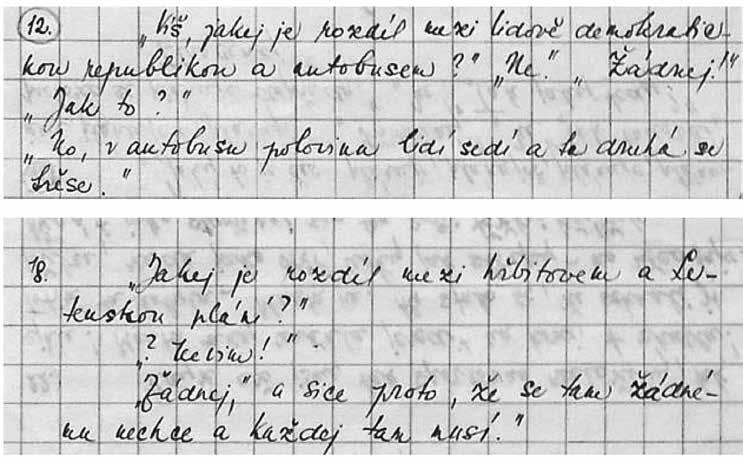 12. „Víš, jakej je rozdíl mezi lidově demokratic-
kou republikou a autobusem?" „Ne." „Žádnej!"
„Jak to?"
„No, v autobusu polovina lidí sedí a ta druhá se
třese."
18. „Jakej je rozdíl mezi hřbitovem a Le-
tenskou plání?"
„? Nevim!".
„Žádnej," a sice proto, že se tam žádné-
mu nechce a každej tam musí."